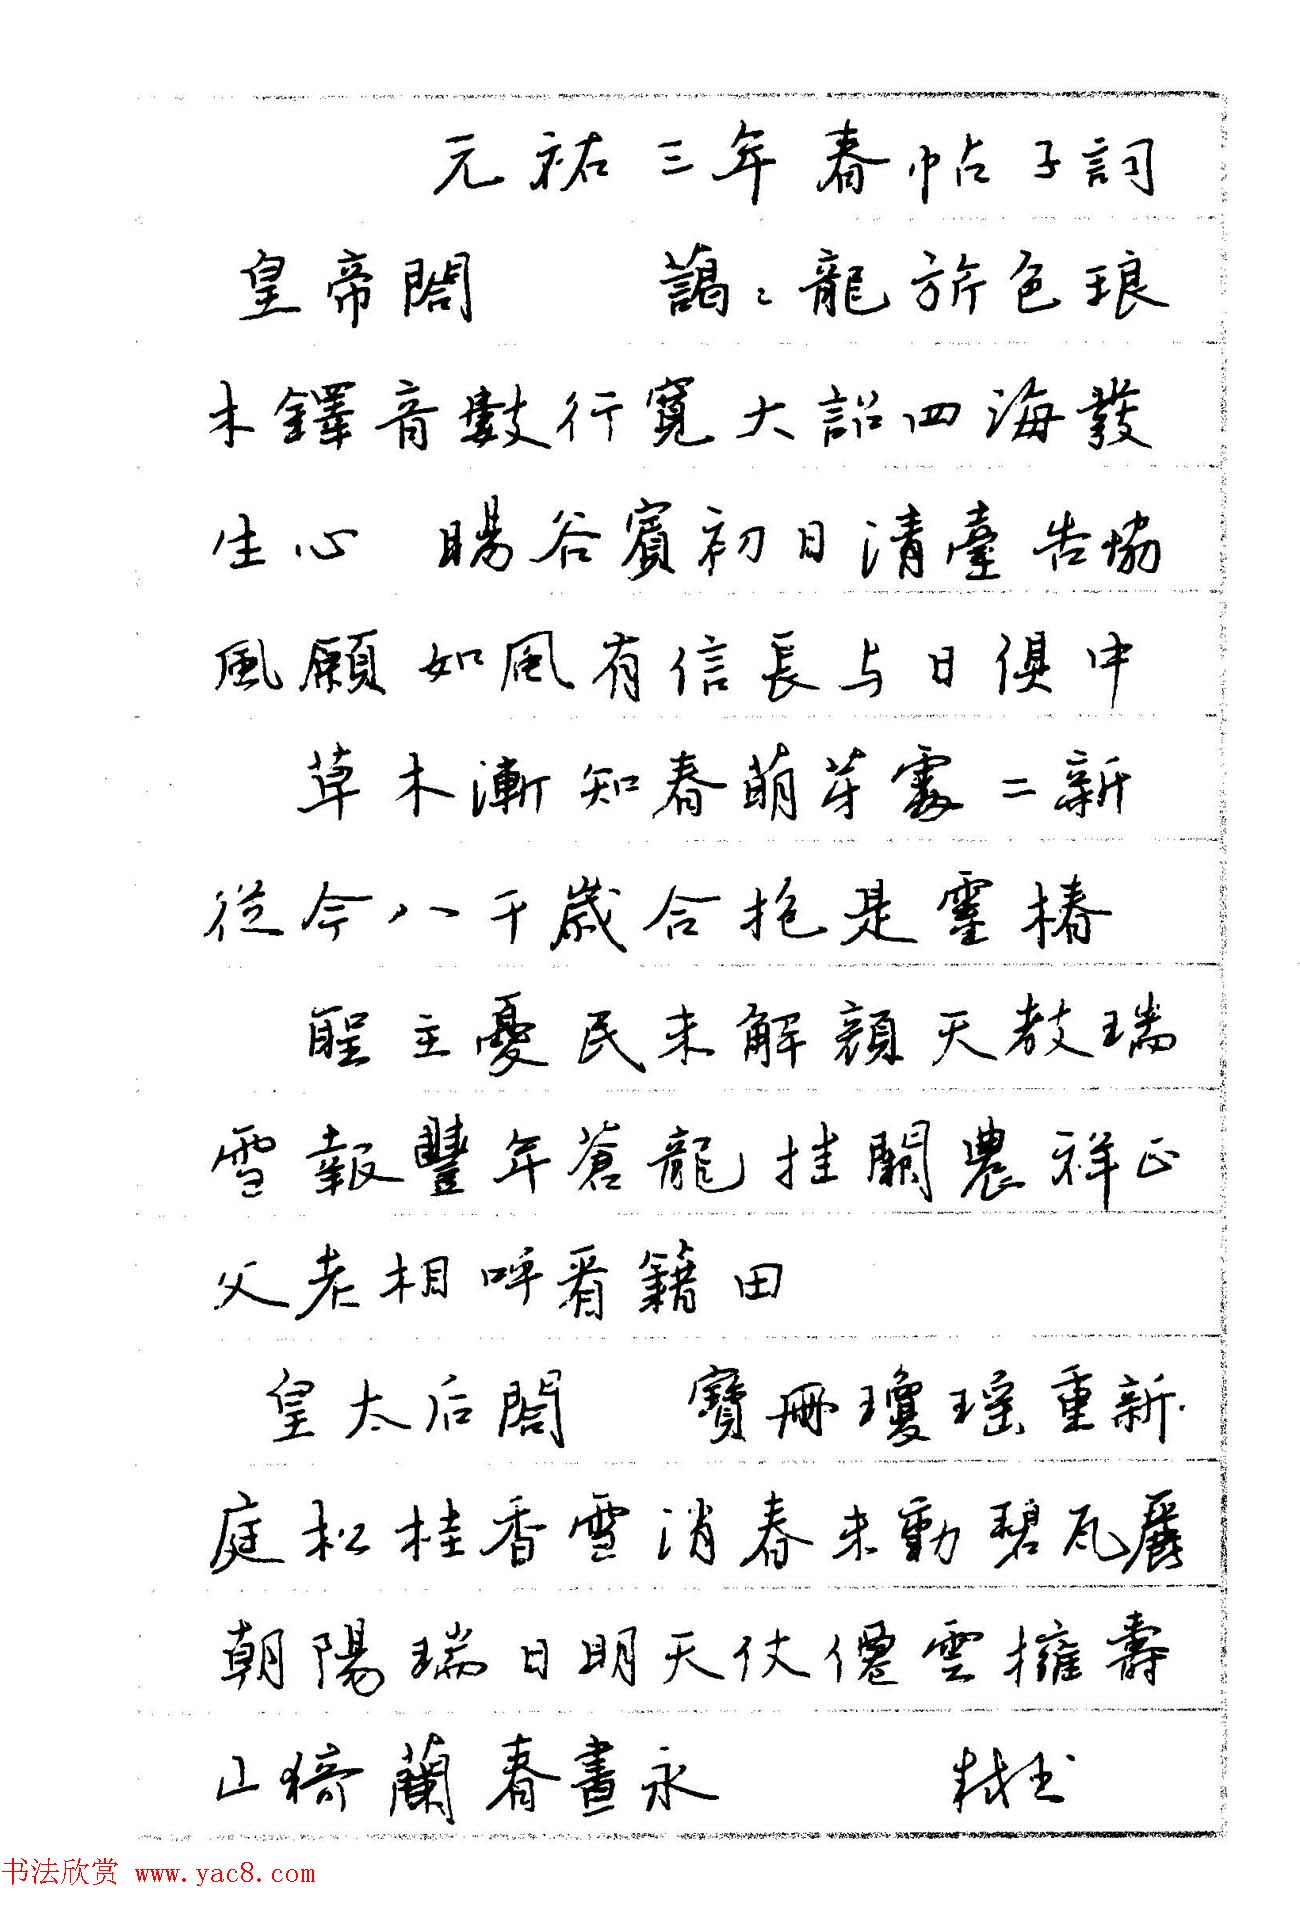 元祐三年春帖子詞
皇帝閤 藹〻龍旂色琅
木鐸音數行寬大詔四海發
生心 暘谷賓初日清臺告協
風願如風有信長与日俱中
草木漸知春萌芽處二新
從今八千歲合抱是靈椿
聖主憂民未解顔天教瑞
雪報豐年蒼龍挂闕農祥正
父老相呼看籍田
皇太后閤 寶冊瓊瑤重新
庭松桂香雪消春未動碧瓦麗
朝陽瑞日明天仗僊雲擁壽
山猗蘭春晝永
书法欣赏 www.yac8.com